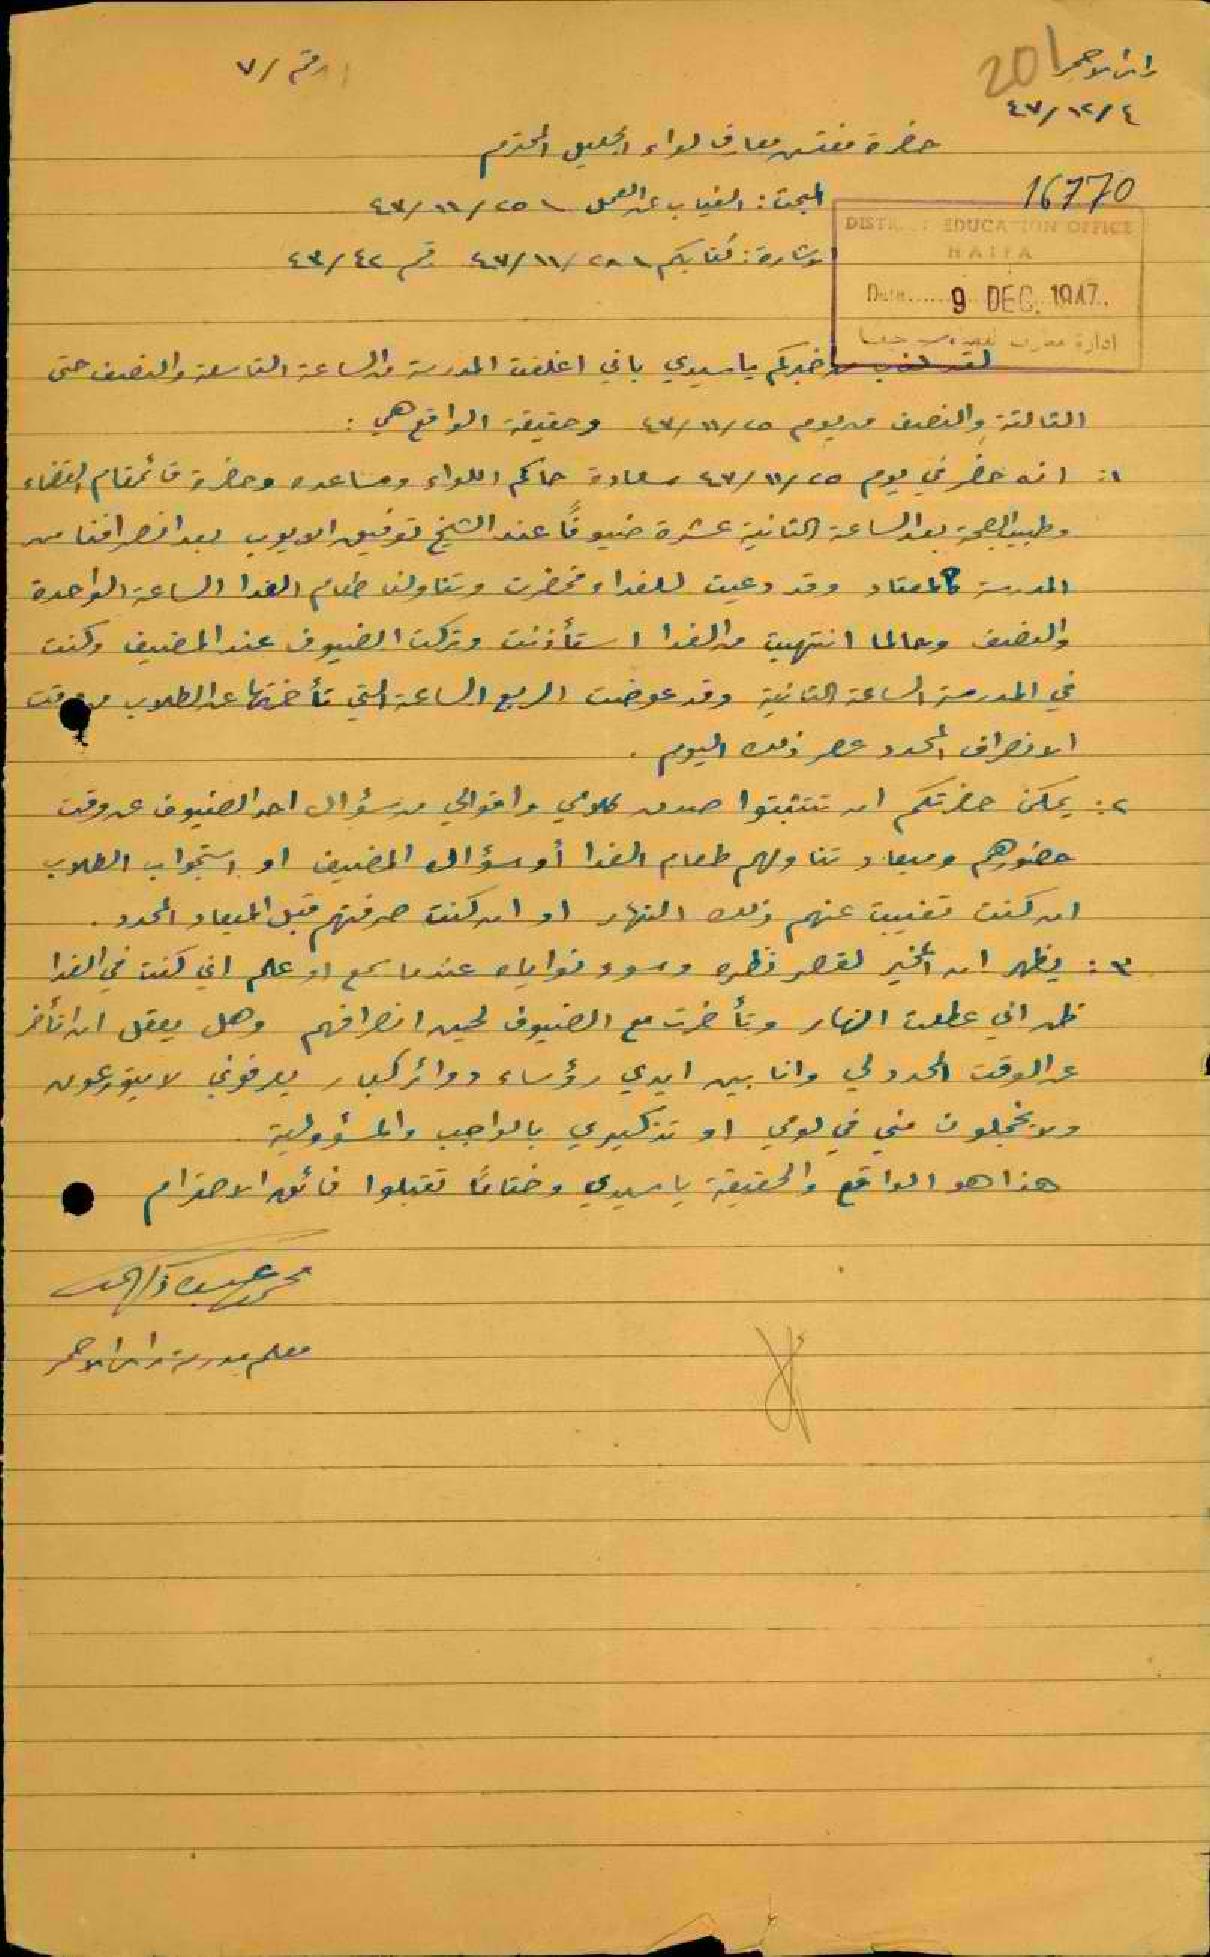 راس الاحمر
201
رقم / ٧
٤ / ١٢ / ٤٧
حضرة مفتش معارف لواء الجليل المحترم
16770
المبحث: الغياب عن العمل ٢٥ / ١١ / ٤٧
الاشارة: كتابكم ٢٨ / ١١ / ٤٧ رقم ٤٢ / ٤٣
DISTRICT EDUCATION OFFICE
HAIFA
Date...... 9 DEC. 1947.
ادارة معارف حيفا
لقد كذب مخبركم يا سيدي باني اغلقت المدرسة من الساعة التاسعة والنصف حتى
الثالثة والنصف من يوم ٢٥ / ١١ / ٤٧ وحقيقة الواقع هي :
١: انه حضر في يوم ٢٥ / ١١ / ٤٧ سعادة حاكم اللواء ومساعده وحضرة قائمقام القضاء
وطبيب الصحة بعد الساعة الثانية عشرة ضيوفًا عند الشيخ توفيق الايوب بعد انصرافنا من
المدرسة كالمعتاد وقد دعيت للغداء فحضرت وتناولنا طعام الغدا الساعة الواحدة
والنصف وحالما انتهيت من الغدا استأذنت وتركت الضيوف عند المضيف وكنت
في المدرسة الساعة الثانية وقد عوضت الربع الساعة التي تأخرتها عن الطلاب من وقت
الانصراف المحدد عصر ذلك اليوم .
٢: يمكن حضرتكم ان تتثبتوا صدق كلامي واقوالي من سؤال احد الضيوف عن وقت
حضورهم وميعاد تناولهم طعام الغدا أو سؤال المضيف او استجواب الطلاب
ان كنت تغيبت عنهم ذلك النهار او ان كنت صرفتهم قبل الميعاد المحدد .
٣: يظهر ان المخبر لقصر نظره وسوء نواياه عندما سمع او علم اني كنت في الغدا
ظن اني عطلت النهار وتأخرت مع الضيوف لحين انصرافهم وهل يعقل ان اتأخر
عن الوقت المحدد لي وانا بين ايدي رؤساء دوائر كبار يعرفوني لا يتورعون
ولا يخجلون مني في لومي او تذكيري بالواجب والمسؤولية
هذا هو الواقع والحقيقة يا سيدي وختامًا تقبلوا فائق الاحترام
معلم مدرسة راس الاحمر